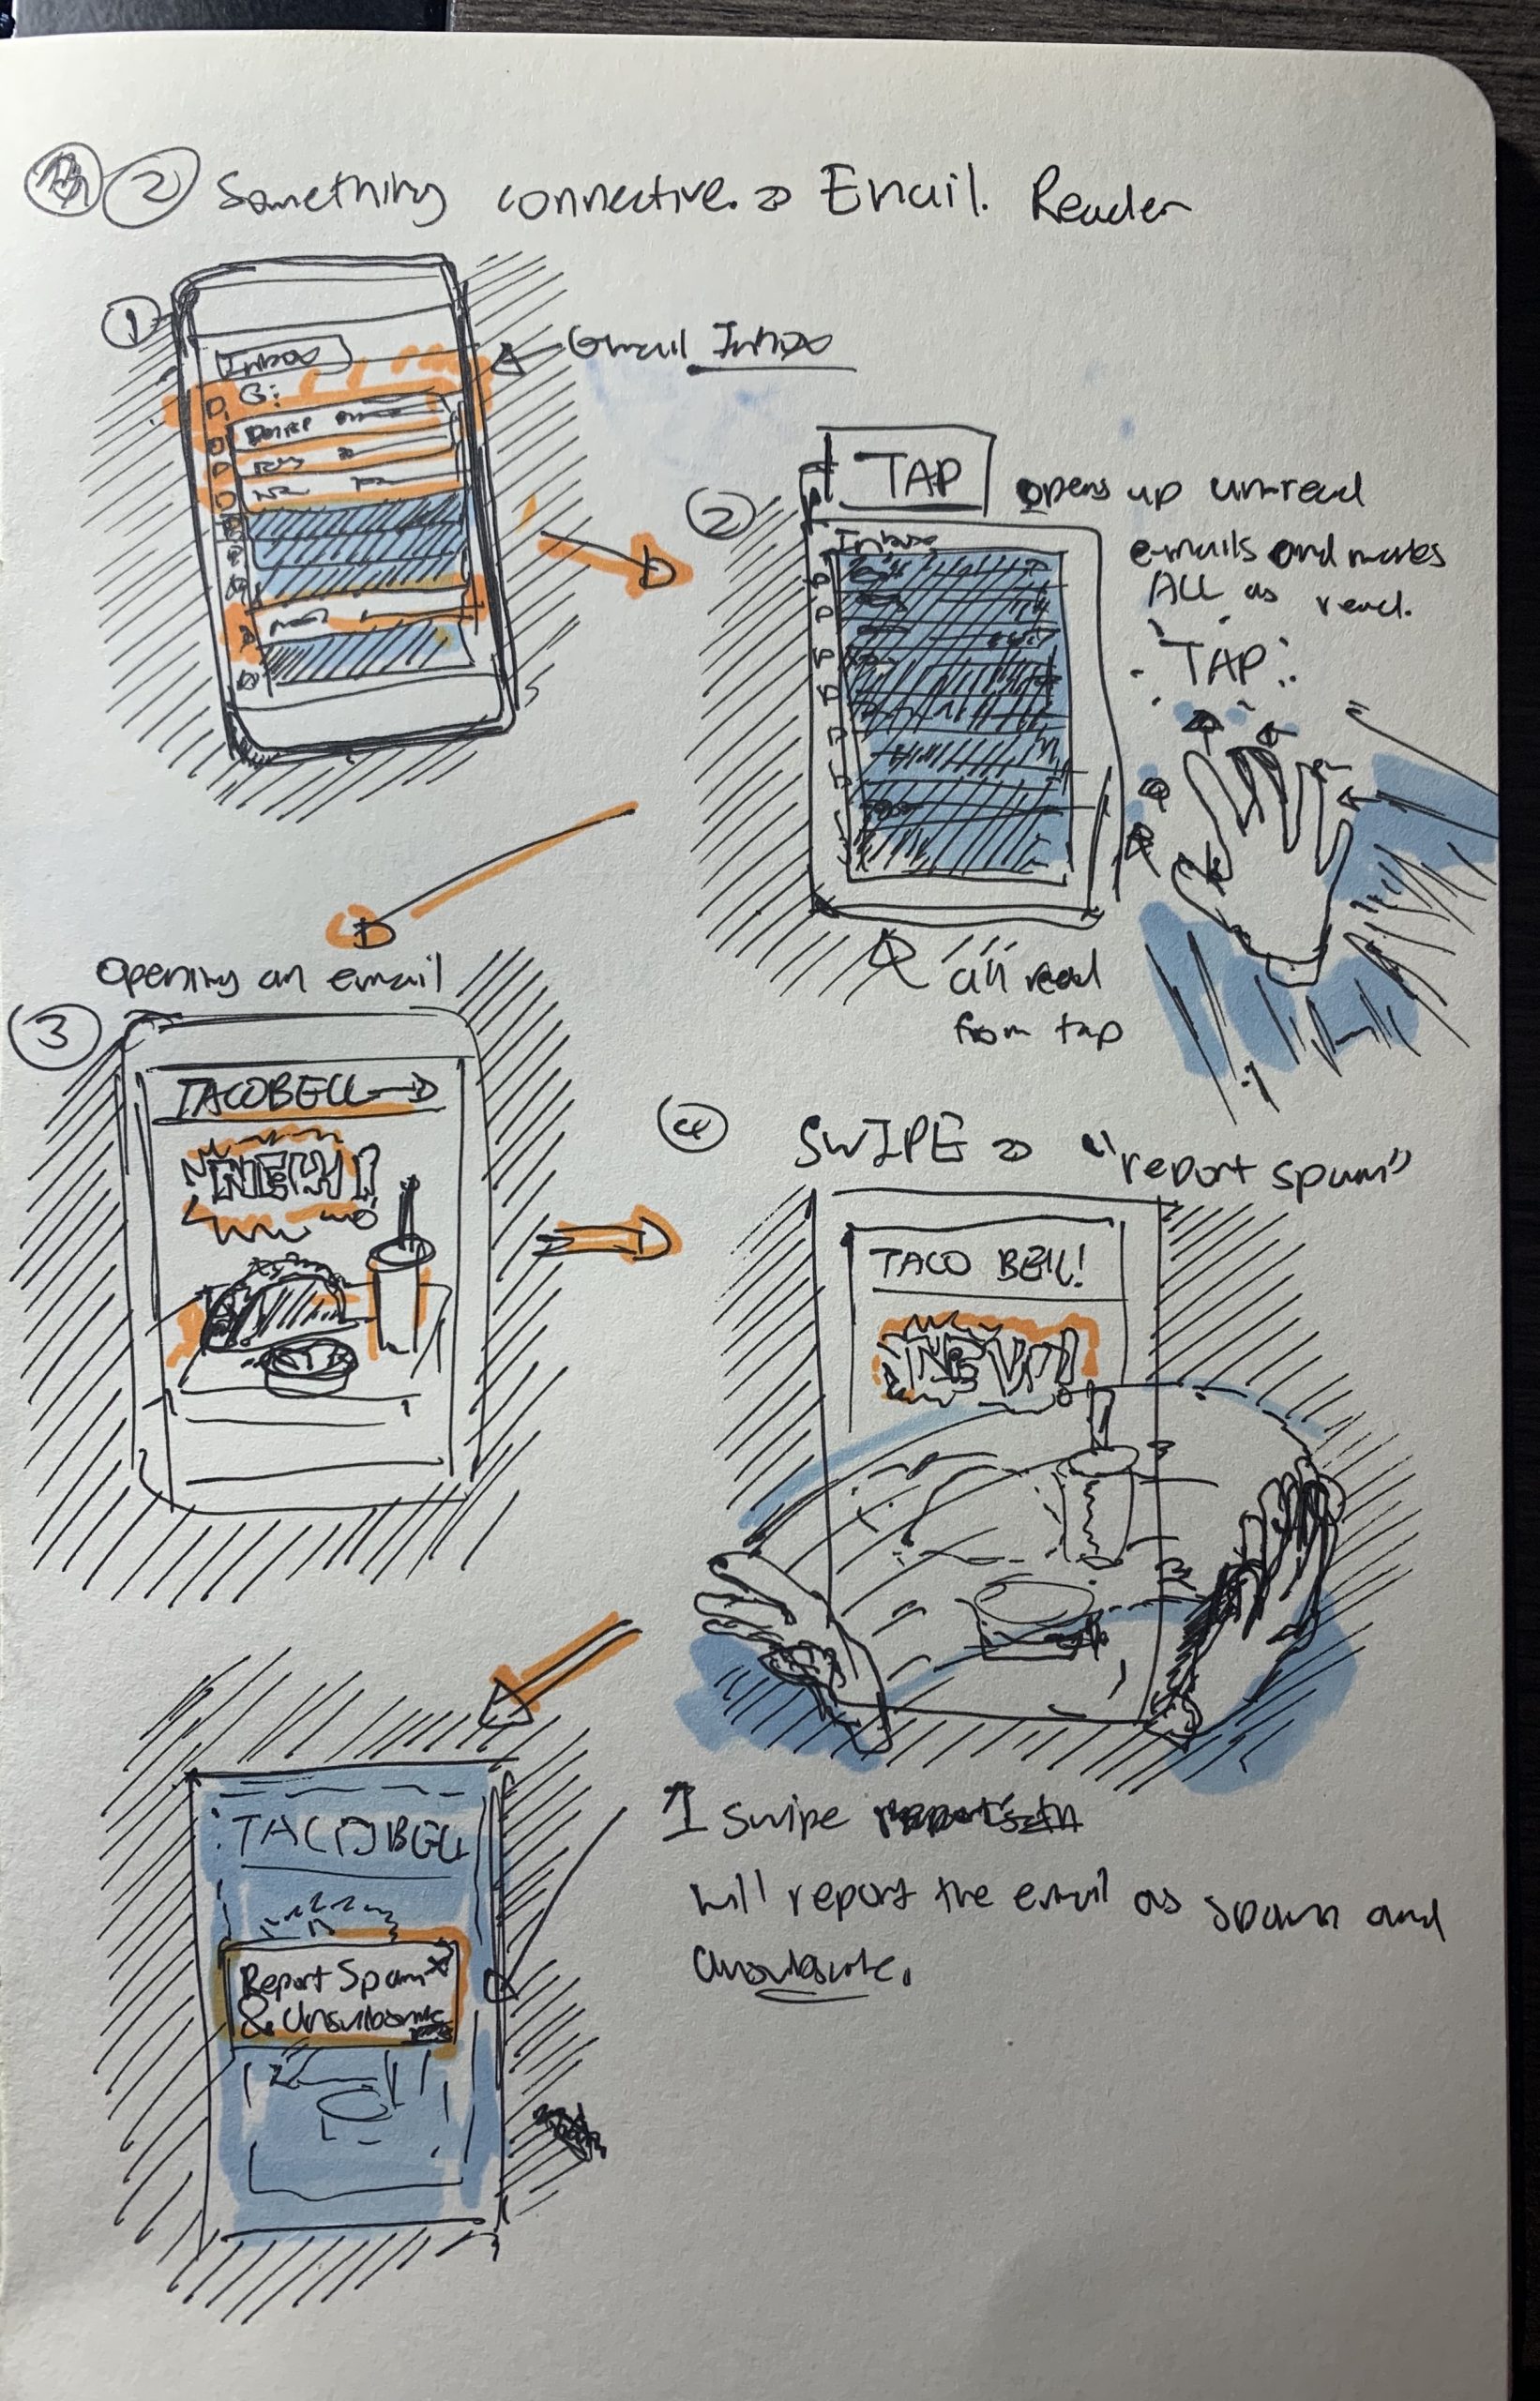 ② Something connective. => Email. Reader
①
Inbox
G:
Gmail Inbox
②
TAP
opens up un-read
e-mails and marks
ALL as read.
TAP
Inbox
all read
from tap
opening an email
③
TACOBELL
NEW!
④ SWIPE => "report spam"
TACO BELL!
NEW!
1 swipe
will report the email as spam and
unsubscribe.
TACO BELL
Report Spam X
& Unsubscribe